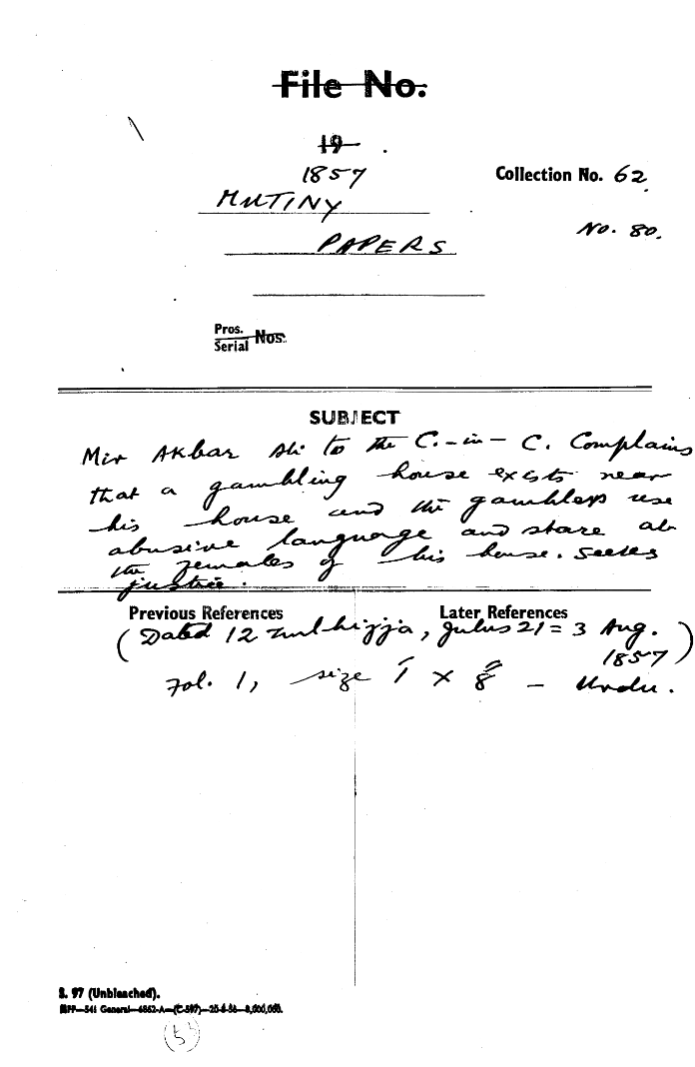 File No.
19
1857
Collection No. 62
MUTINY
No. 80.
PAPERS
Pros.
Serial Nos.
SUBJECT
Mir Akbar Ali to the C.-in-C. Complains
that a gambling house exists near
his house and the gamblers use
abusive language and stare at
the females of his house. Seeks
justice.
Previous References Later References
(Dated 12 Zulhijja, Julus 21 = 3 Aug.
1857)
Fol. 1, size × 8 – Urdu.
S. 97 (Unbleached).
General—6862-A—(C-597)—20-6-56—8,000,000.